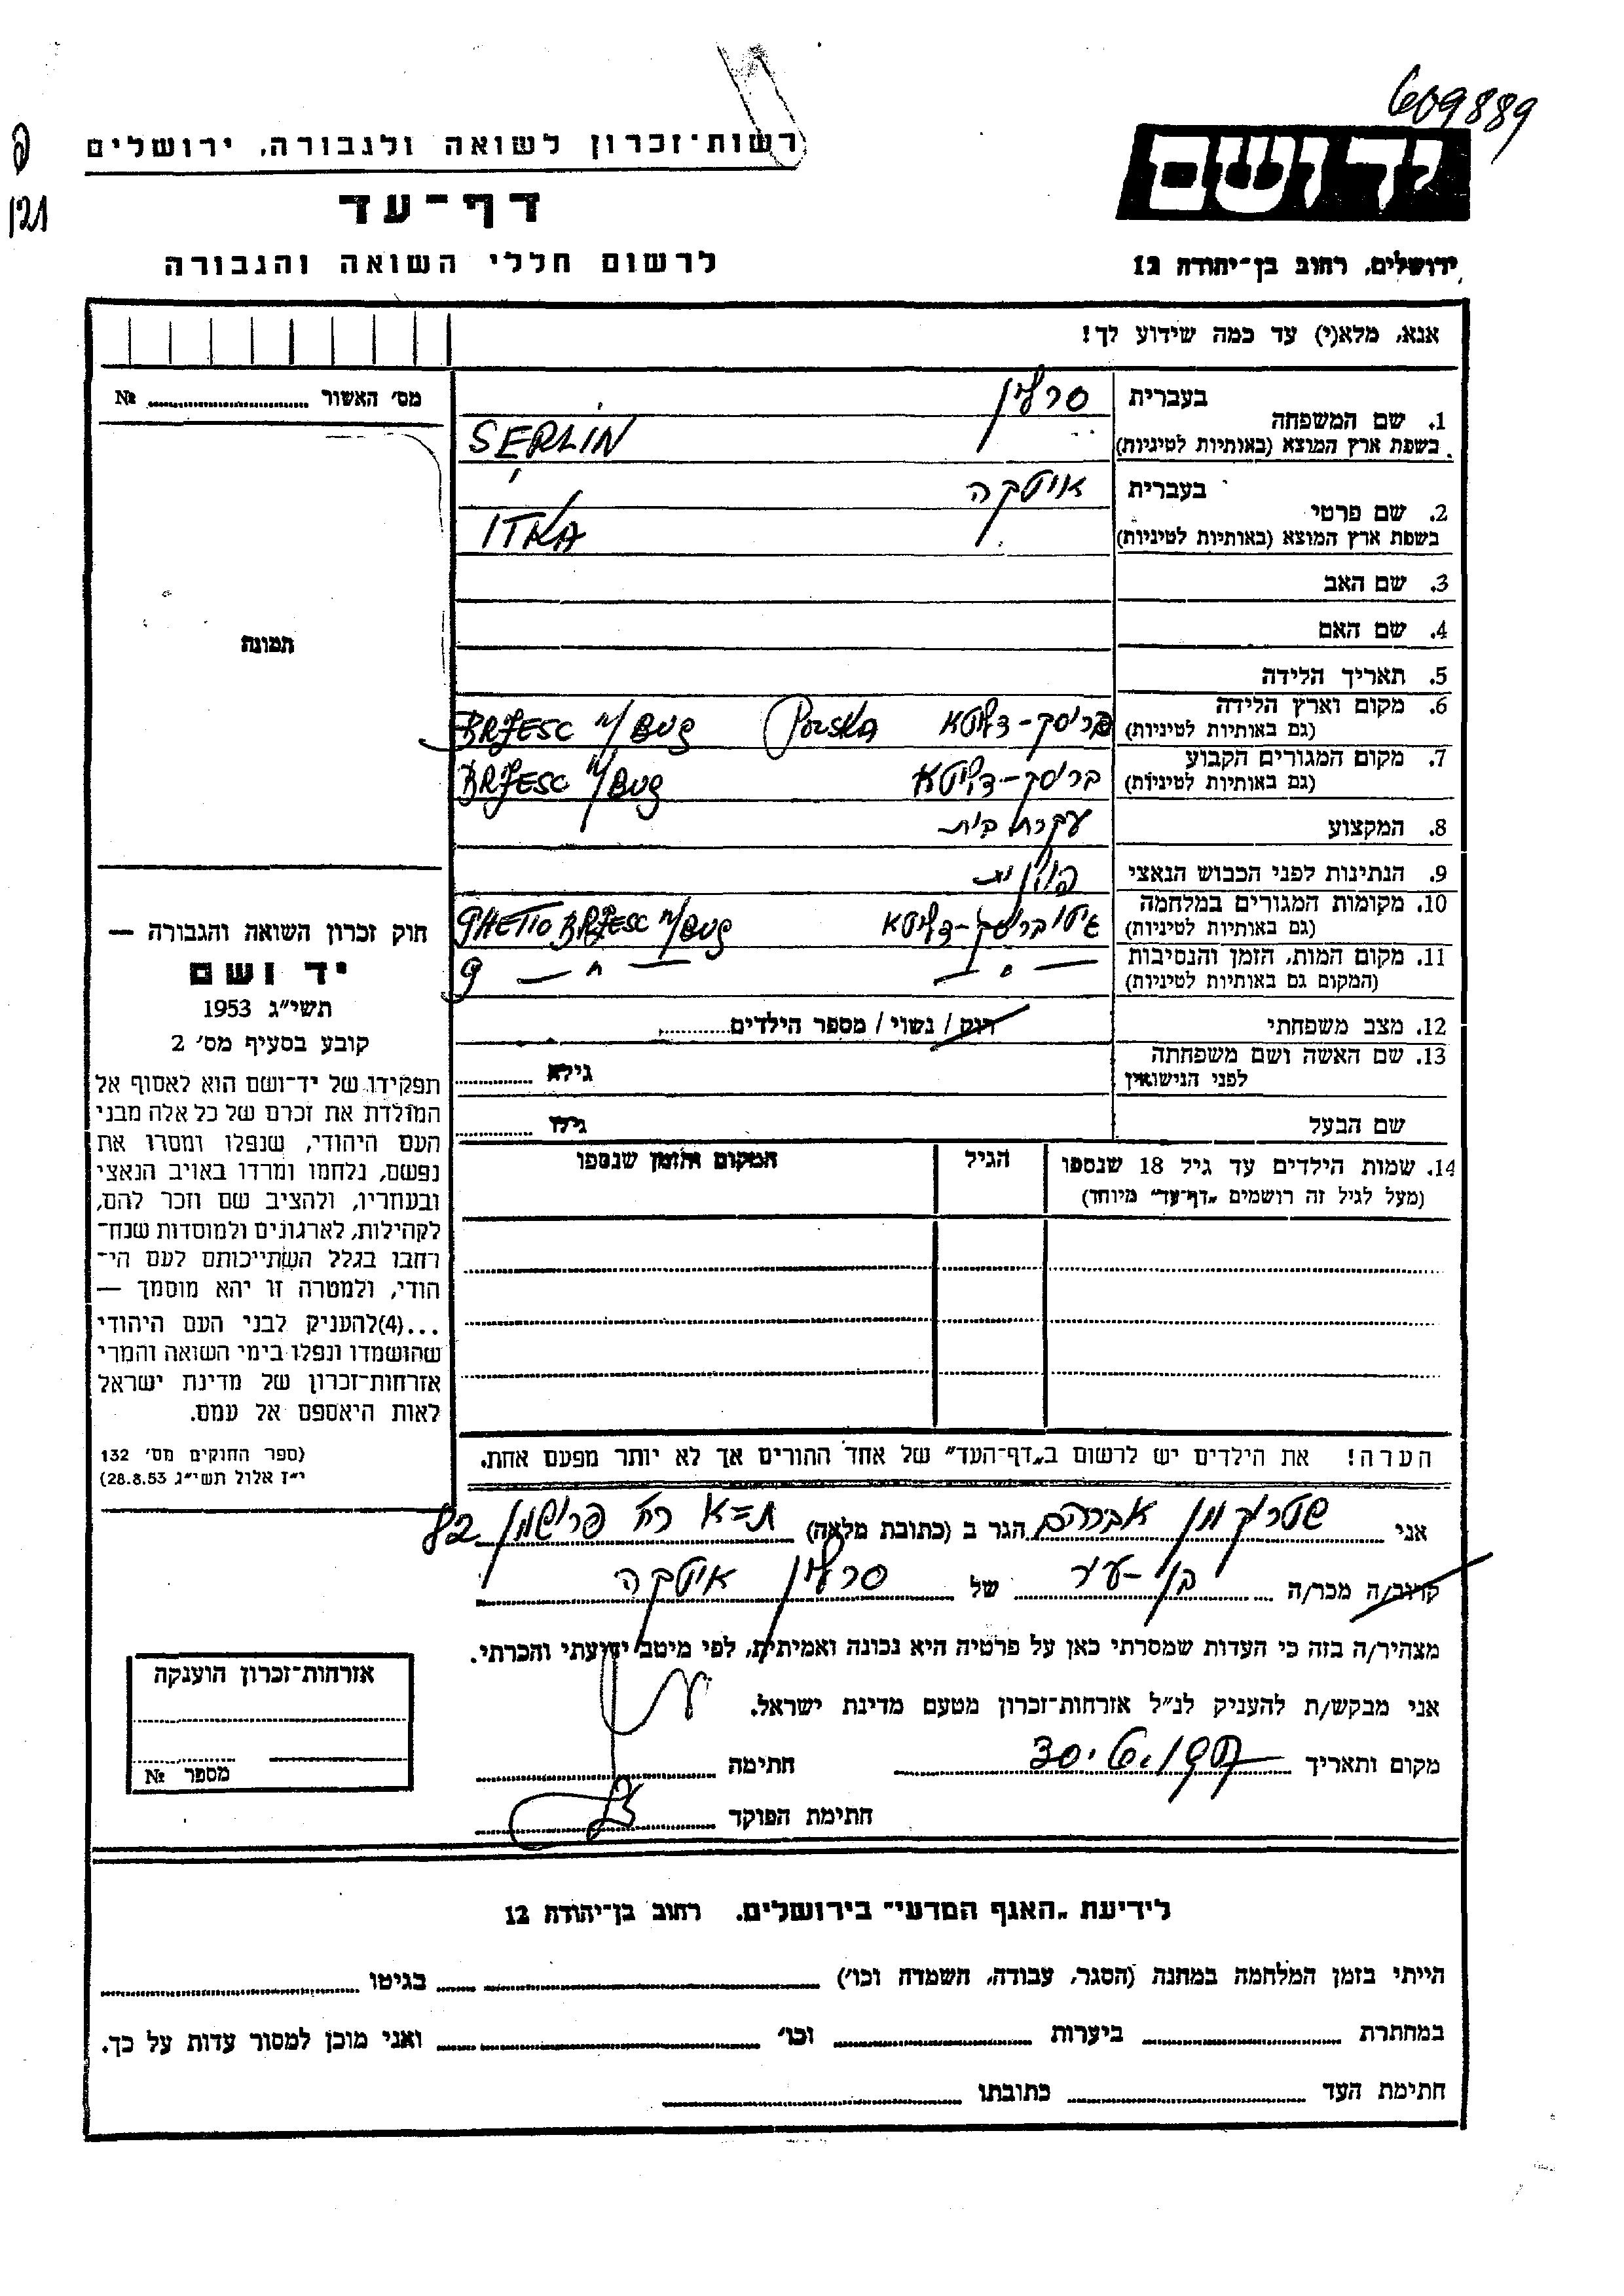 609889
רשות־זכרון לשואה ולגבורה, ירושלים
יד ושם
דף־עד
לרשום חללי השואה והגבורה
ירושלים, רחוב בן־יהודה 12
121
אנא, מלא(י) עד כמה שידוע לך!
מס׳ האשור № 
1. שם המשפחה בעברית סרלין
בשפת ארץ המוצא (באותיות לטיניות) SERLIN
2. שם פרטי בעברית איטקה
בשפת ארץ המוצא (באותיות לטיניות) ITKA
3. שם האב
4. שם האם
תמונה
5. תאריך הלידה
6. מקום וארץ הלידה (גם באותיות לטיניות) בריסק-דליטא POLSKA BRZESC n/BUG
7. מקום המגורים הקבוע (גם באותיות לטיניות) בריסק-דליטא BRZESC n/BUG
8. המקצוע עקרת בית
9. הנתינות לפני הכבוש הנאצי פולנית
10. מקומות המגורים במלחמה (גם באותיות לטיניות) גיטו בריסק-דליטא GHETTO BRZESC n/BUG
11. מקום המות, הזמן והנסיבות (המקום גם באותיות לטיניות)
12. מצב משפחתי רווק / נשוי / מספר הילדים
13. שם האשה ושם משפחתה לפני הנישואין גילא
שם הבעל גילו
14. שמות הילדים עד גיל 18 שנספו הגיל המקום והזמן שנספו
(מעל לגיל זה רושמים „דף־עד" מיוחד)
חוק זכרון השואה והגבורה —
יד ושם
תשי״ג 1953
קובע בסעיף מס׳ 2
תפקידו של יד־ושם הוא לאסוף אל
המולדת את זכרם של כל אלה מבני
העם היהודי, שנפלו ומסרו את
נפשם, נלחמו ומרדו באויב הנאצי
ובעוזריו, ולהציב שם וזכר להם,
לקהילות, לארגונים ולמוסדות שנח־
רחבו בגלל השתייכותם לעם הי־
הודי, ולמטרה זו יהא מוסמך —
...(4)להעניק לבני העם היהודי
שהושמדו ונפלו בימי השואה והמרי
אזרחות־זכרון של מדינת ישראל
לאות היאספם אל עמם.
(ספר החוקים מס׳ 132
י״ז אלול תשי״ג 28.8.53)
הערה! את הילדים יש לרשום ב„דף־העד" של אחד ההורים אך לא יותר מפעם אחת.
אני אברהם הגר ב (כתובת מלאה) ת-א רח 82
קרוב/ה מכר/ה בן-עיר של סרלין איטקה
מצהיר/ה בזה כי העדות שמסרתי כאן על פרטיה היא נכונה ואמיתית, לפי מיטב ידיעתי והכרתי.
אני מבקש/ת להעניק לנ״ל אזרחות־זכרון מטעם מדינת ישראל.
מקום ותאריך חתימה
חתימת הפוקד
אזרחות־זכרון הוענקה
מספר №
לידיעת „האגף המדעי" בירושלים, רחוב בן־יהודה 12
הייתי בזמן המלחמה במחנה (הסגר, עבודה, השמדה וכו׳) בגיטו
במחתרת ביערות וכו׳ ואני מוכן למסור עדות על כך.
חתימת העד כתובתו